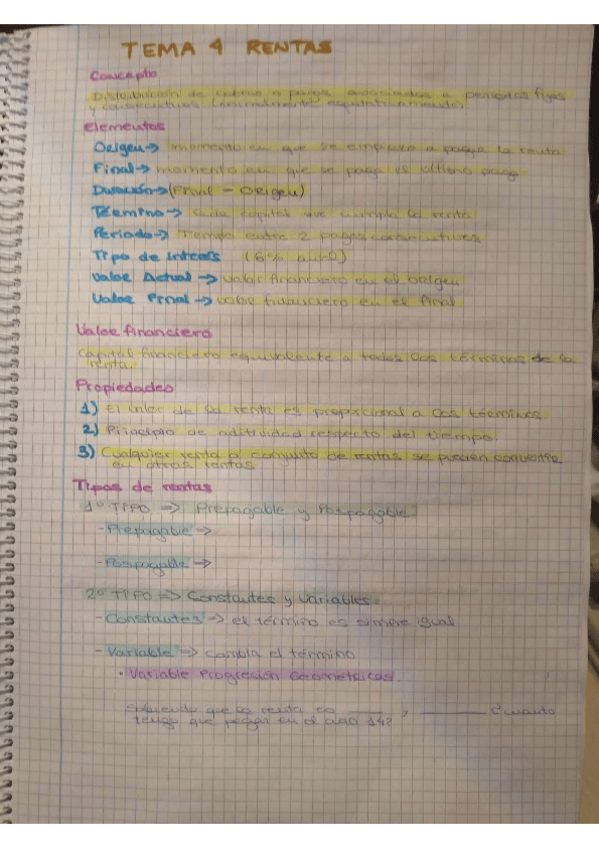 TEMA 4 RENTAS
Concepto
Distribución de cobros o pagos asociados a periodos fijos
y consecutivos
elementos
Origen → momento en que se empieza a pagar la renta
Final → momento en que se paga el último pago
Duración → (Final - Origen)
Término → Cada capital que cumple la renta
Periodo → Tiempo entre 2 pagos consecutivos
Tipo de interés (6% anual)
Valor Actual → Valor financiero en el origen
Valor Final → Valor financiero en el final
Valor financiero
Capital financiero equivalente a todos los términos de la
renta.
Propiedades
1) El valor de la renta es proporcional a los términos
2) Principio de aditividad respecto del tiempo
3) Cualquier renta o conjunto de rentas se pueden convertir
en otras rentas
Tipos de rentas
1º TIPO ⇒ Prepagable y Pospagable
- Prepagable →
- Pospagable →
2º TIPO ⇒ Constantes y Variables
- Constantes → el término es siempre igual
- Variable → Cambia el término
• Variable Progresión Geométricas.
que la renta es ____ , ____ ¿cuanto
tengo que pagar en el año 14?